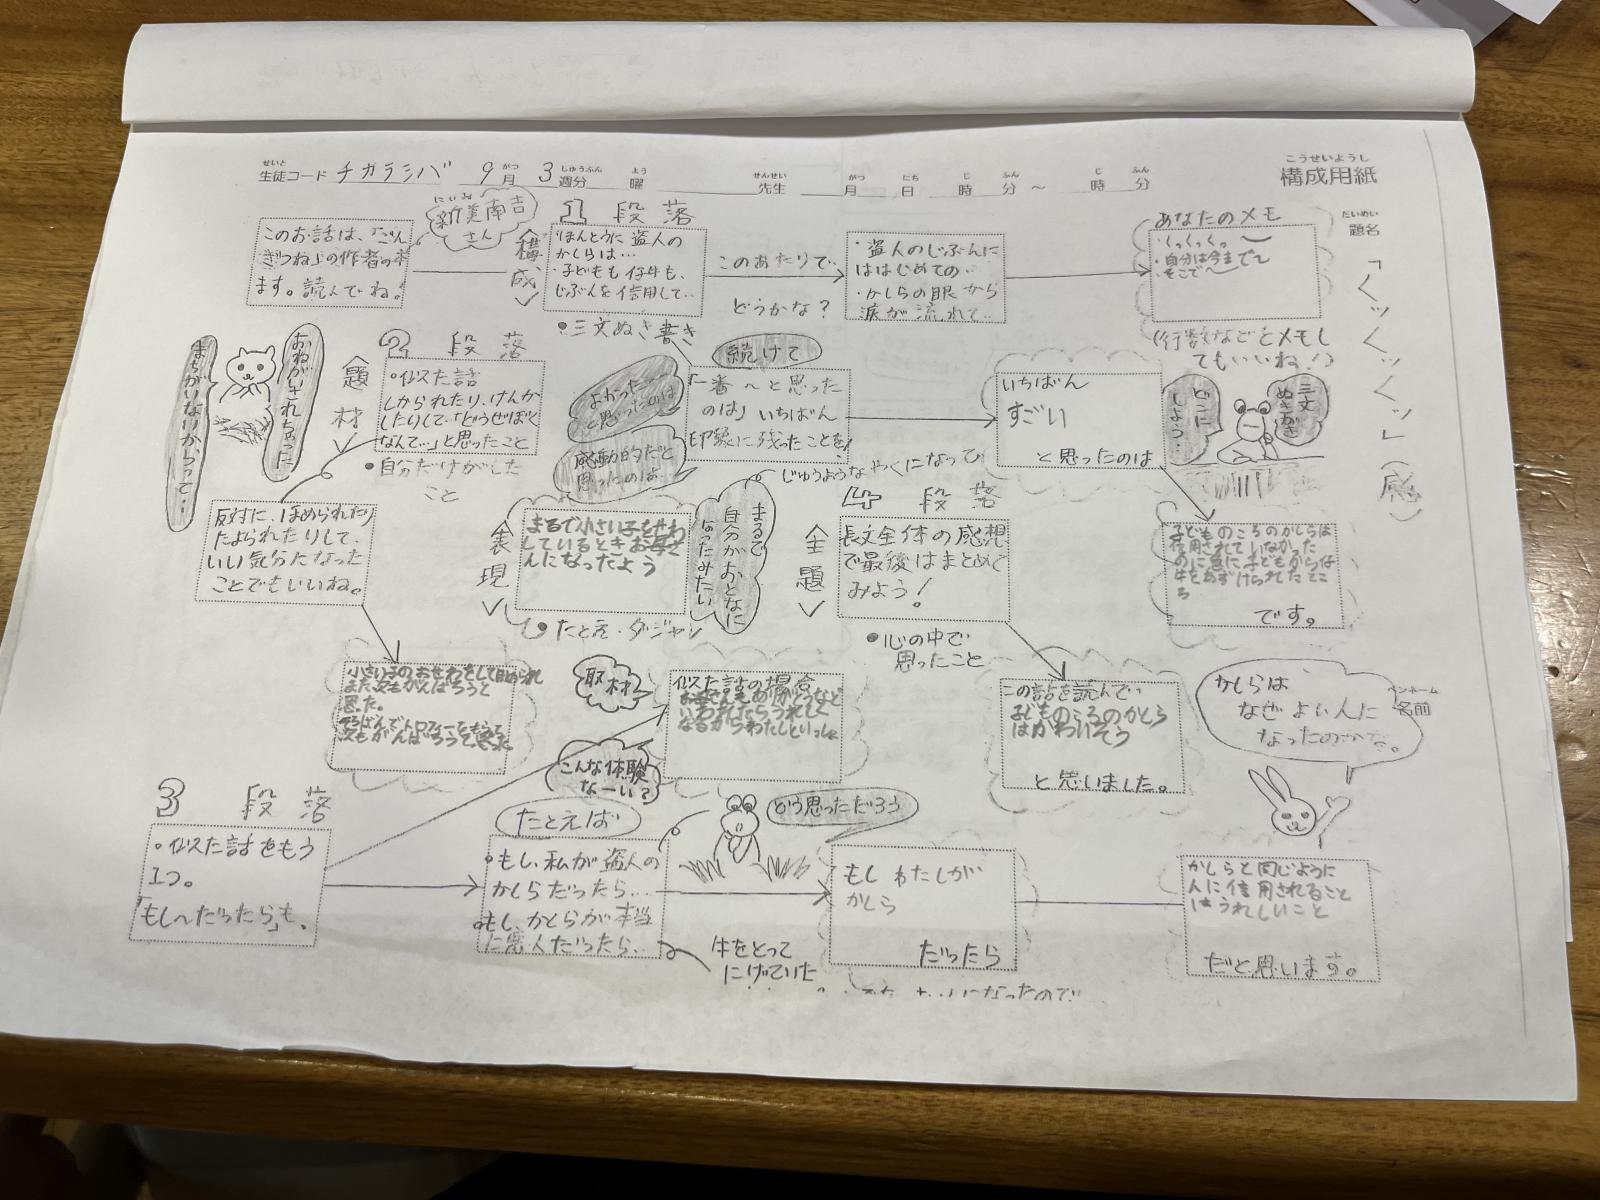 せいと
生徒コード チカラシバ 9月 3週分 曜 先生 月 日 時 分 ～ 時 分
こうせいようし
構成用紙
だいめい
題名
「クックックッ」(感)
ペンネーム
名前
このお話は、「ごん
ぎつね」の作者の本
ます。読んでね。
にいみ
新美南吉
さん
1 段落
〈構成〉
・ほんとうに盗人の
かしらは…
・子どもも仔牛も、
じぶんを信用して…
●三文ぬき書き
このあたりで…
どうかな？
・盗人のじぶんに
ははじめての…
・かしらの眼から
涙が流れて…
あなたのメモ
・くっくっくっ～
・自分は今まで～
・そこで～
(行数などをメモし
てもいいね！)
おねがいされちゃった
まちがいないからって…
2 段落
〈題材〉
・似た話
しかられたり、けんか
したりして、「どうせぼく
なんて…」と思ったこと
●自分だけがした
こと
よかった
と思ったのは
感動的だと
思ったのは…
続けて
「一番～と思った
のは」いちばん
印象に残ったことを！
いちばん
すごい
と思ったのは
どこに
しよう…
三文
ぬきがき
反対に、ほめられたり
たよられたりして、
いい気分になった
ことでもいいね。
〈表現〉
まるで小さい子をせわ
しているときお母さ
んになったよう
●たとえ・ダジャレ
まるで
自分がおとなに
なったみたい
じゅうようなやくになって
4 段落
〈主題〉
長文全体の感想
で最後はまとめて
みよう！
●心の中で
思ったこと…
子どものころのかしらは
信用されていなかった
のに急に子どもから仔
牛をあずけられたとこ
ろ
です。
小さい子のおせわをして ほめられ
また次もがんばろうと
思った。
そろばんでトロフィーをもらって
次もがんばろうって思った
取材
こんな体験
なーい？
似た話の場合
お母さんも
いわれたらうれしく
なるからわたしといっしょ
この話を読んで
子どものころのかしら
はかわいそう
と思いました。
かしらは
なぜよい人に
なったのかな。
3 段落
・似た話をもう
1つ。
「もし～だったら」も、
たとえば
・もし、私が盗人の
かしらだったら…
・もし、かしらが本当
に悪人だったら…
どう思っただろう
牛をとって
にげていた
もしわたしが
かしら
だったら
かしらと同じように
人に信用されること
はうれしいこと
だと思います。